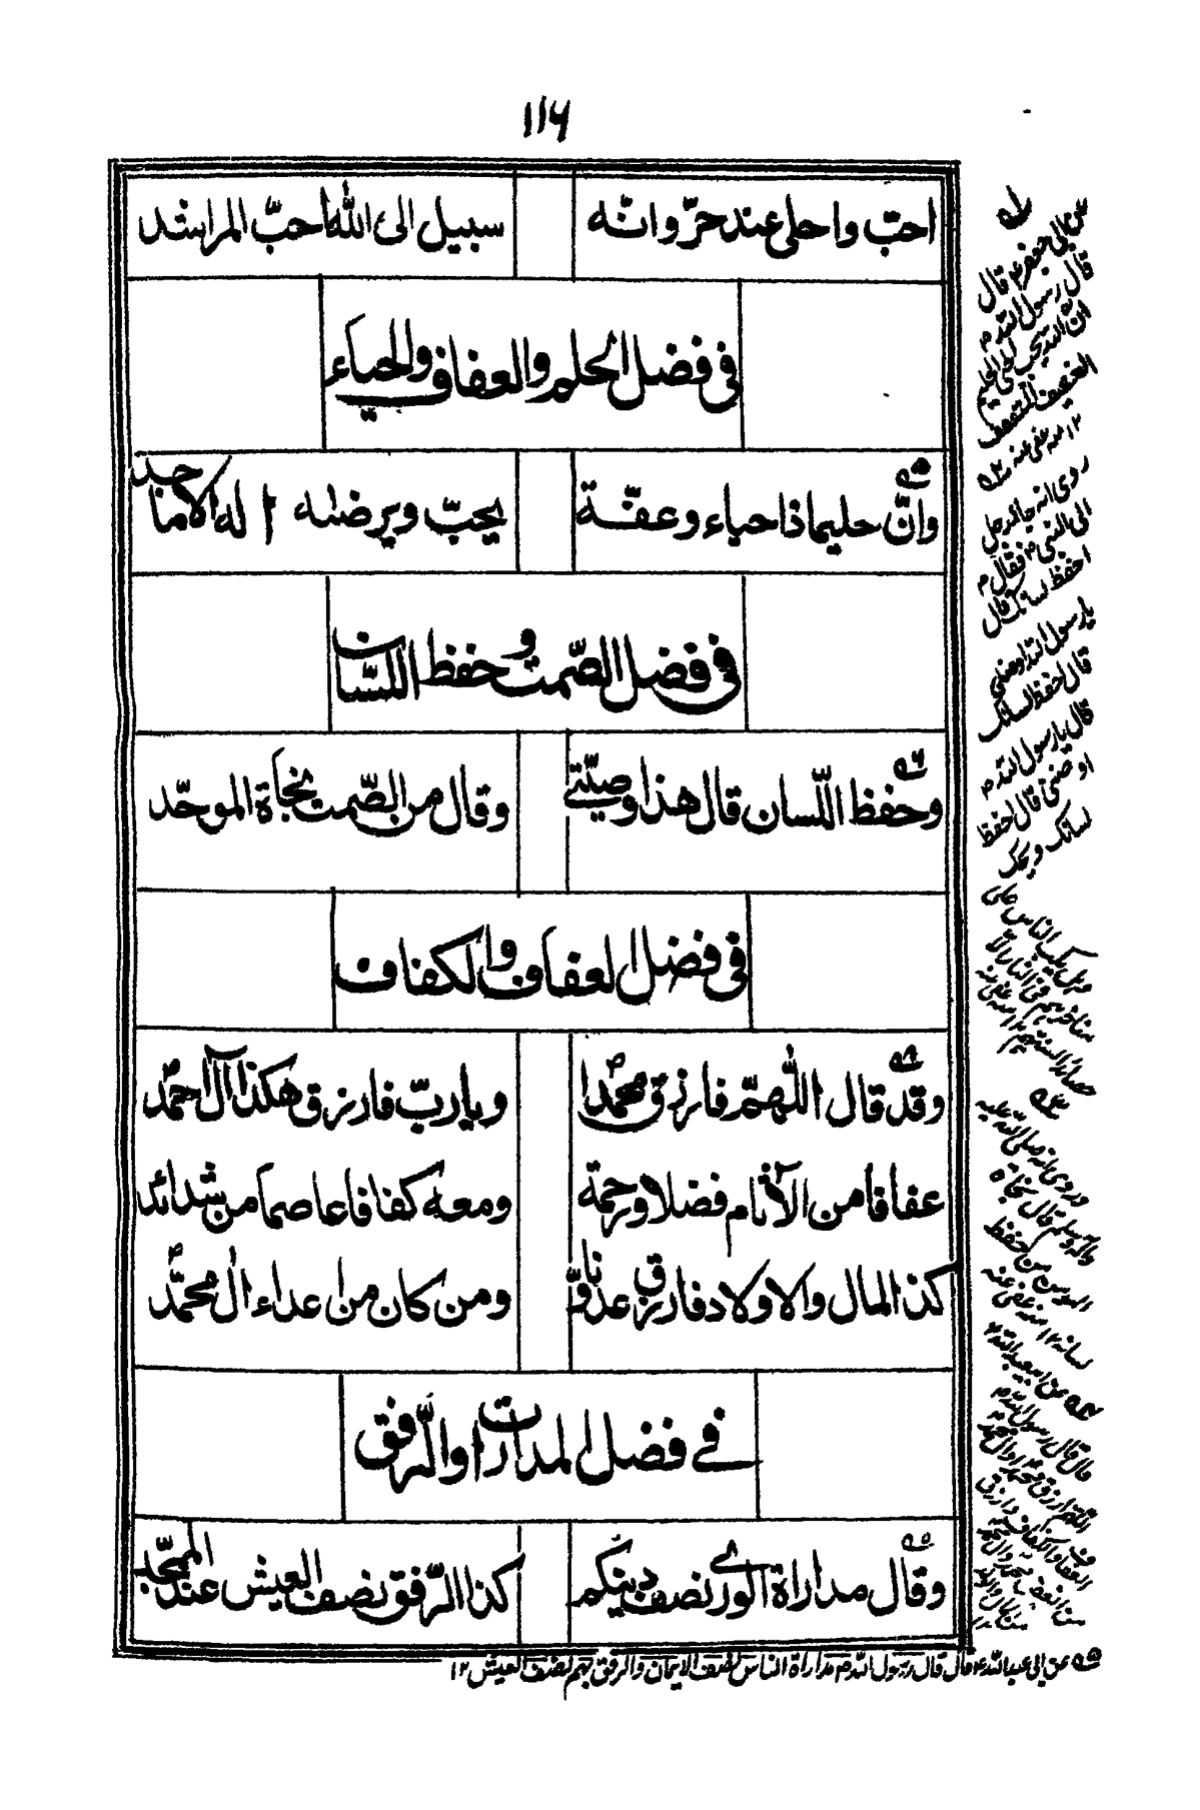 ۱۱۶
احبّ واحلى عند حرّ وانّه سبيل الى الله احبّ المراشد
فى فضل الحلم والعفاف والحياء
وانّ حليما ذا حياء وعفّة يحبّ ويرضٰه الٰه الاماجد
فى فضل الصّمت و حفظ اللسّان
وحفظ اللّسان قال هذا وصيّتى وقال من الصّمت نجاة الموحّد
فى فضل العفاف والكفاف
وقد قال اللّهمّ فارزق محمّدا ويارب فارزق هكذا آل احمد
عفافا من الآثام فضلا ورحمة ومعه كفافا عاصما من شدائد
كذا المال والاولاد فارزق عدوّنا ومن كان من اعداء ال محمّد
فے فضل المدارات والرّفق
وقال مداراة الورى نصف دينكم كذا الرّفق نصف العيش عند الممجّد
عن ابى جعفرؑ قال
قال رسول اللهؐ
انّ الله يحب الحيى الحليم
العفيف المتعفف
۱۲ منه عفى عنه
روى انه جاء رجل
الى النبىؐ فقال
احفظ لسانك قال
يارسول الله اوصنى
قال احفظ لسانك
قال يارسول اللهؐ
اوصنى قال احفظ
لسانك ويحك
وهل يكب الناس على
مناخرهم فى النار الا
حصائد السنتهم ۱۲ منه عفى عنه
وروى انه صلى الله عليه
واله وسلم قال نجاة
المومن من حفظ
لسانه ۱۲ منه عفى عنه
عن ابى عبد اللهؑ
قال قال رسول اللهؐ
اللهم ارزق محمدا وال محمد
العفاف والكفاف وارزق
من ابغض محمدا وال محمد
المال والولد
عن ابى عبد اللهؑ قال قال رسول اللهؐ مداراة الناس نصف الايمان والرفق بهم نصف العيش ۱۲